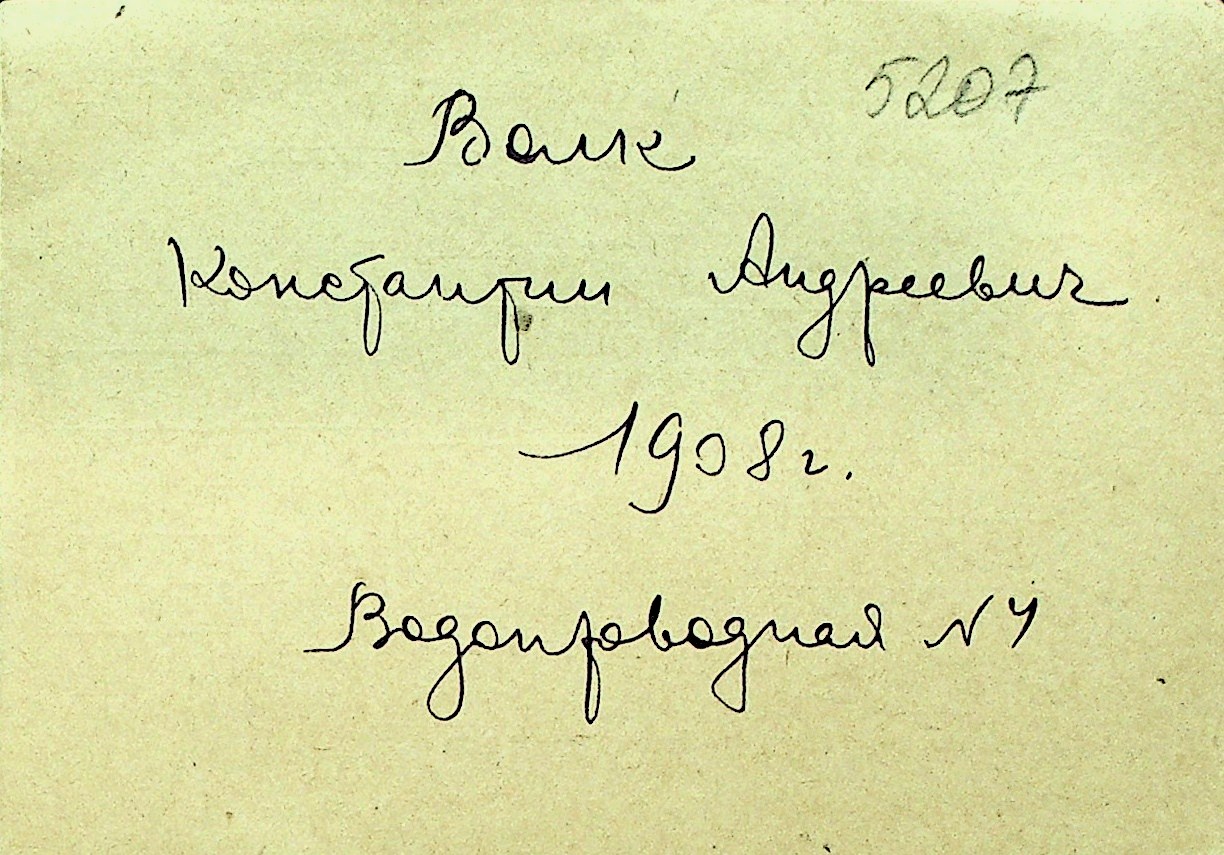 5207
Волк
Константин Андреевич
1908г.
Водопроводная N 4